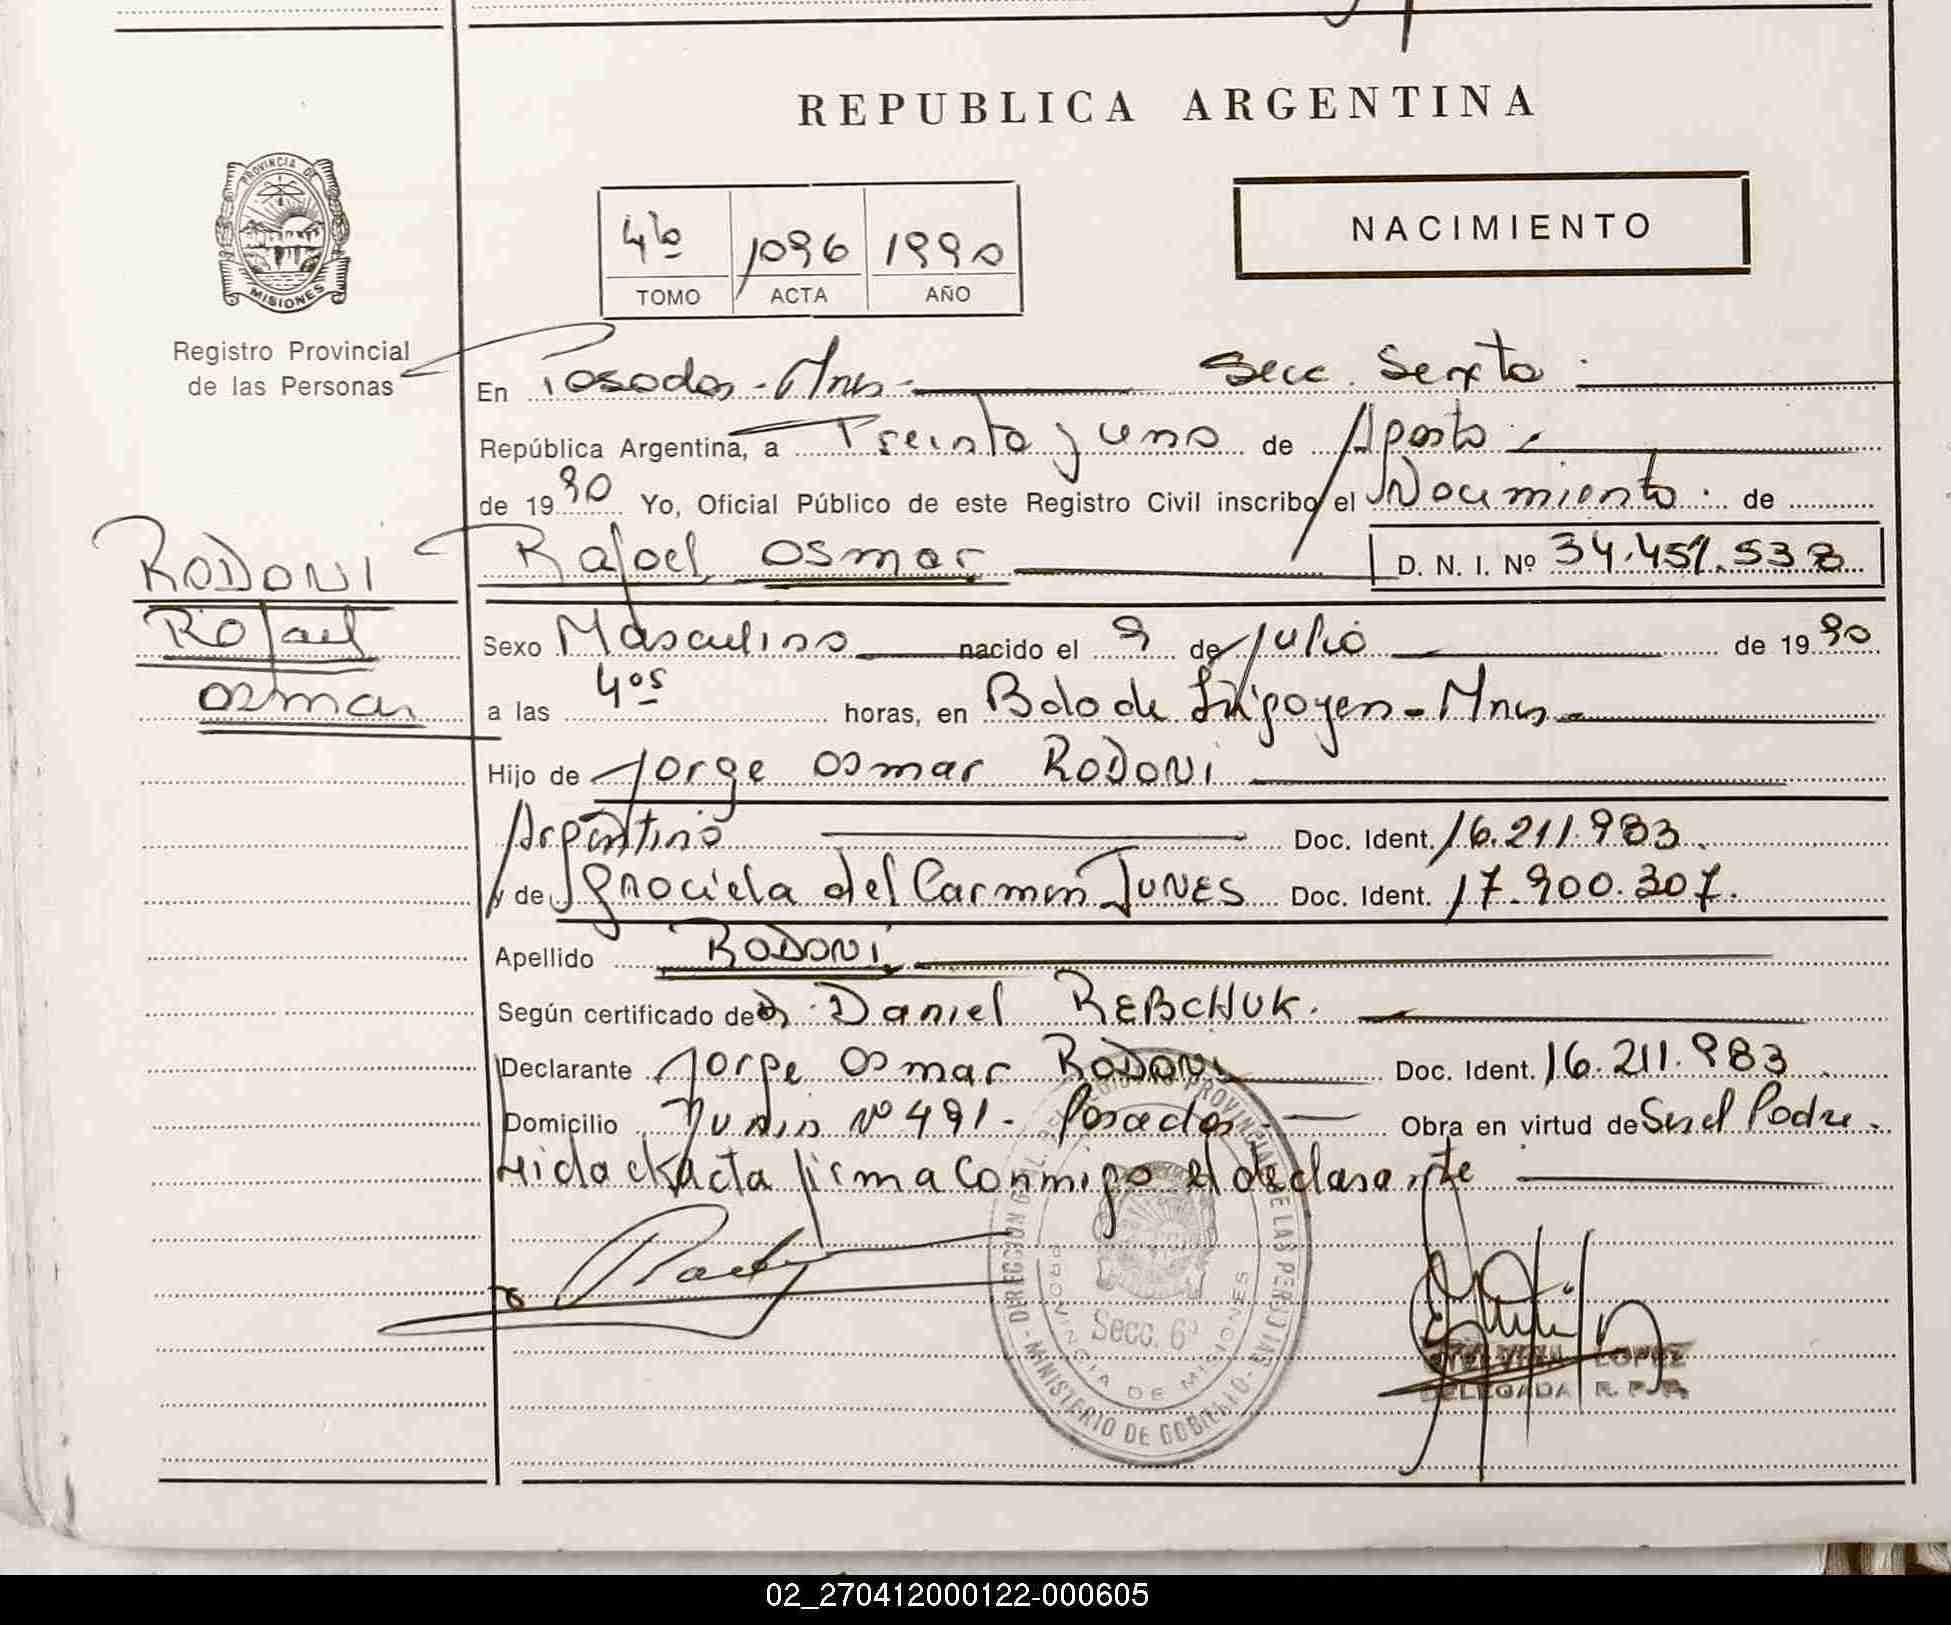 REPUBLICA ARGENTINA
PROVINCIA DE
MISIONES
Registro Provincial
de las Personas
4to 1096 1990
TOMO ACTA AÑO
NACIMIENTO
En Posadas - Mnes - Secc. Sexta
República Argentina, a Treinta y uno de Agosto
de 1990 Yo, Oficial Público de este Registro Civil inscribo el Nacimiento de
Rafael Osmar D. N. I. Nº 34.457.538
RODONI
Rafael
Osmar
Sexo Masculino nacido el 9 de Julio de 1990
a las 4os horas, en Bdo de Irigoyen - Mnes
Hijo de Jorge Osmar RODONI
Argentino Doc. Ident. 16.211.983
y de Graciela del Carmen Doc. Ident. 17.900.307.
Apellido RODONI
Según certificado de Dr. Daniel REBCHUK.
Declarante Jorge Osmar RODONI Doc. Ident. 16.211.983
Domicilio Junin Nº 491 - Posadas Obra en virtud de Ser el Padre
Leida el Acta firma conmigo el declarante
DIRECCION GRAL. DEL REGISTRO PROVINCIAL DE LAS PERSONAS
MINISTERIO DE GOBIERNO
Secc. 6º
PROVINCIA DE MISIONES
LOPEZ
DELEGADA R. P. P.
02_270412000122-000605